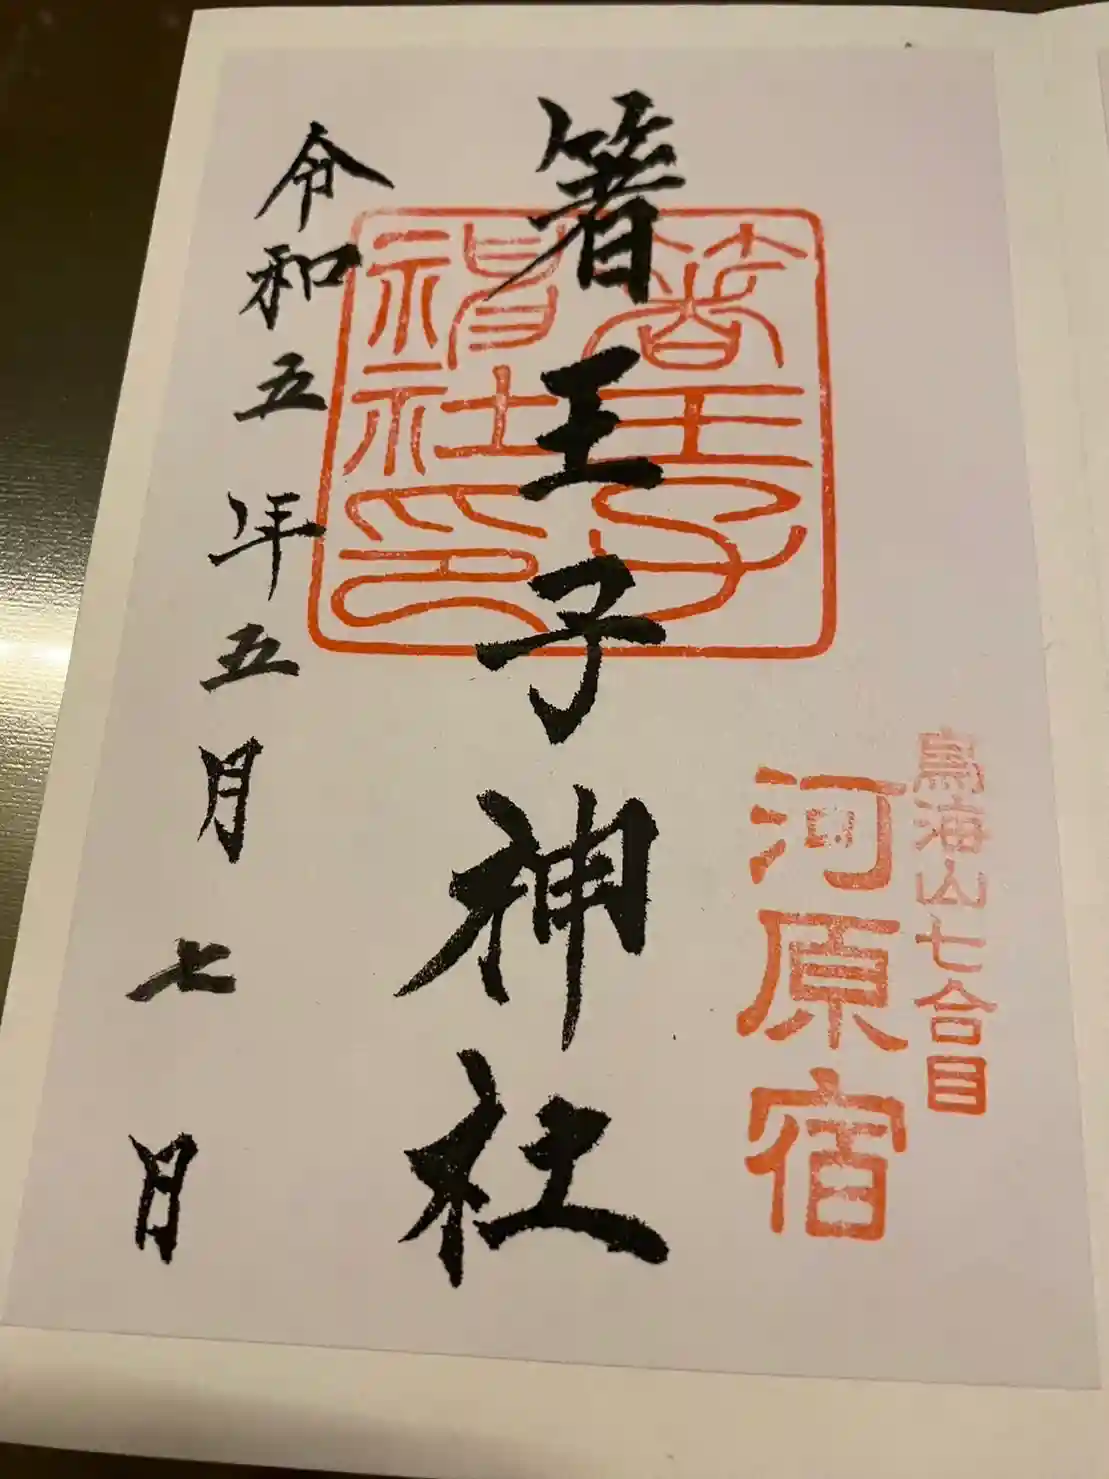 鳥海山七合目
河原宿
箸王子神社
箸王子
神社印
令和五年五月七日